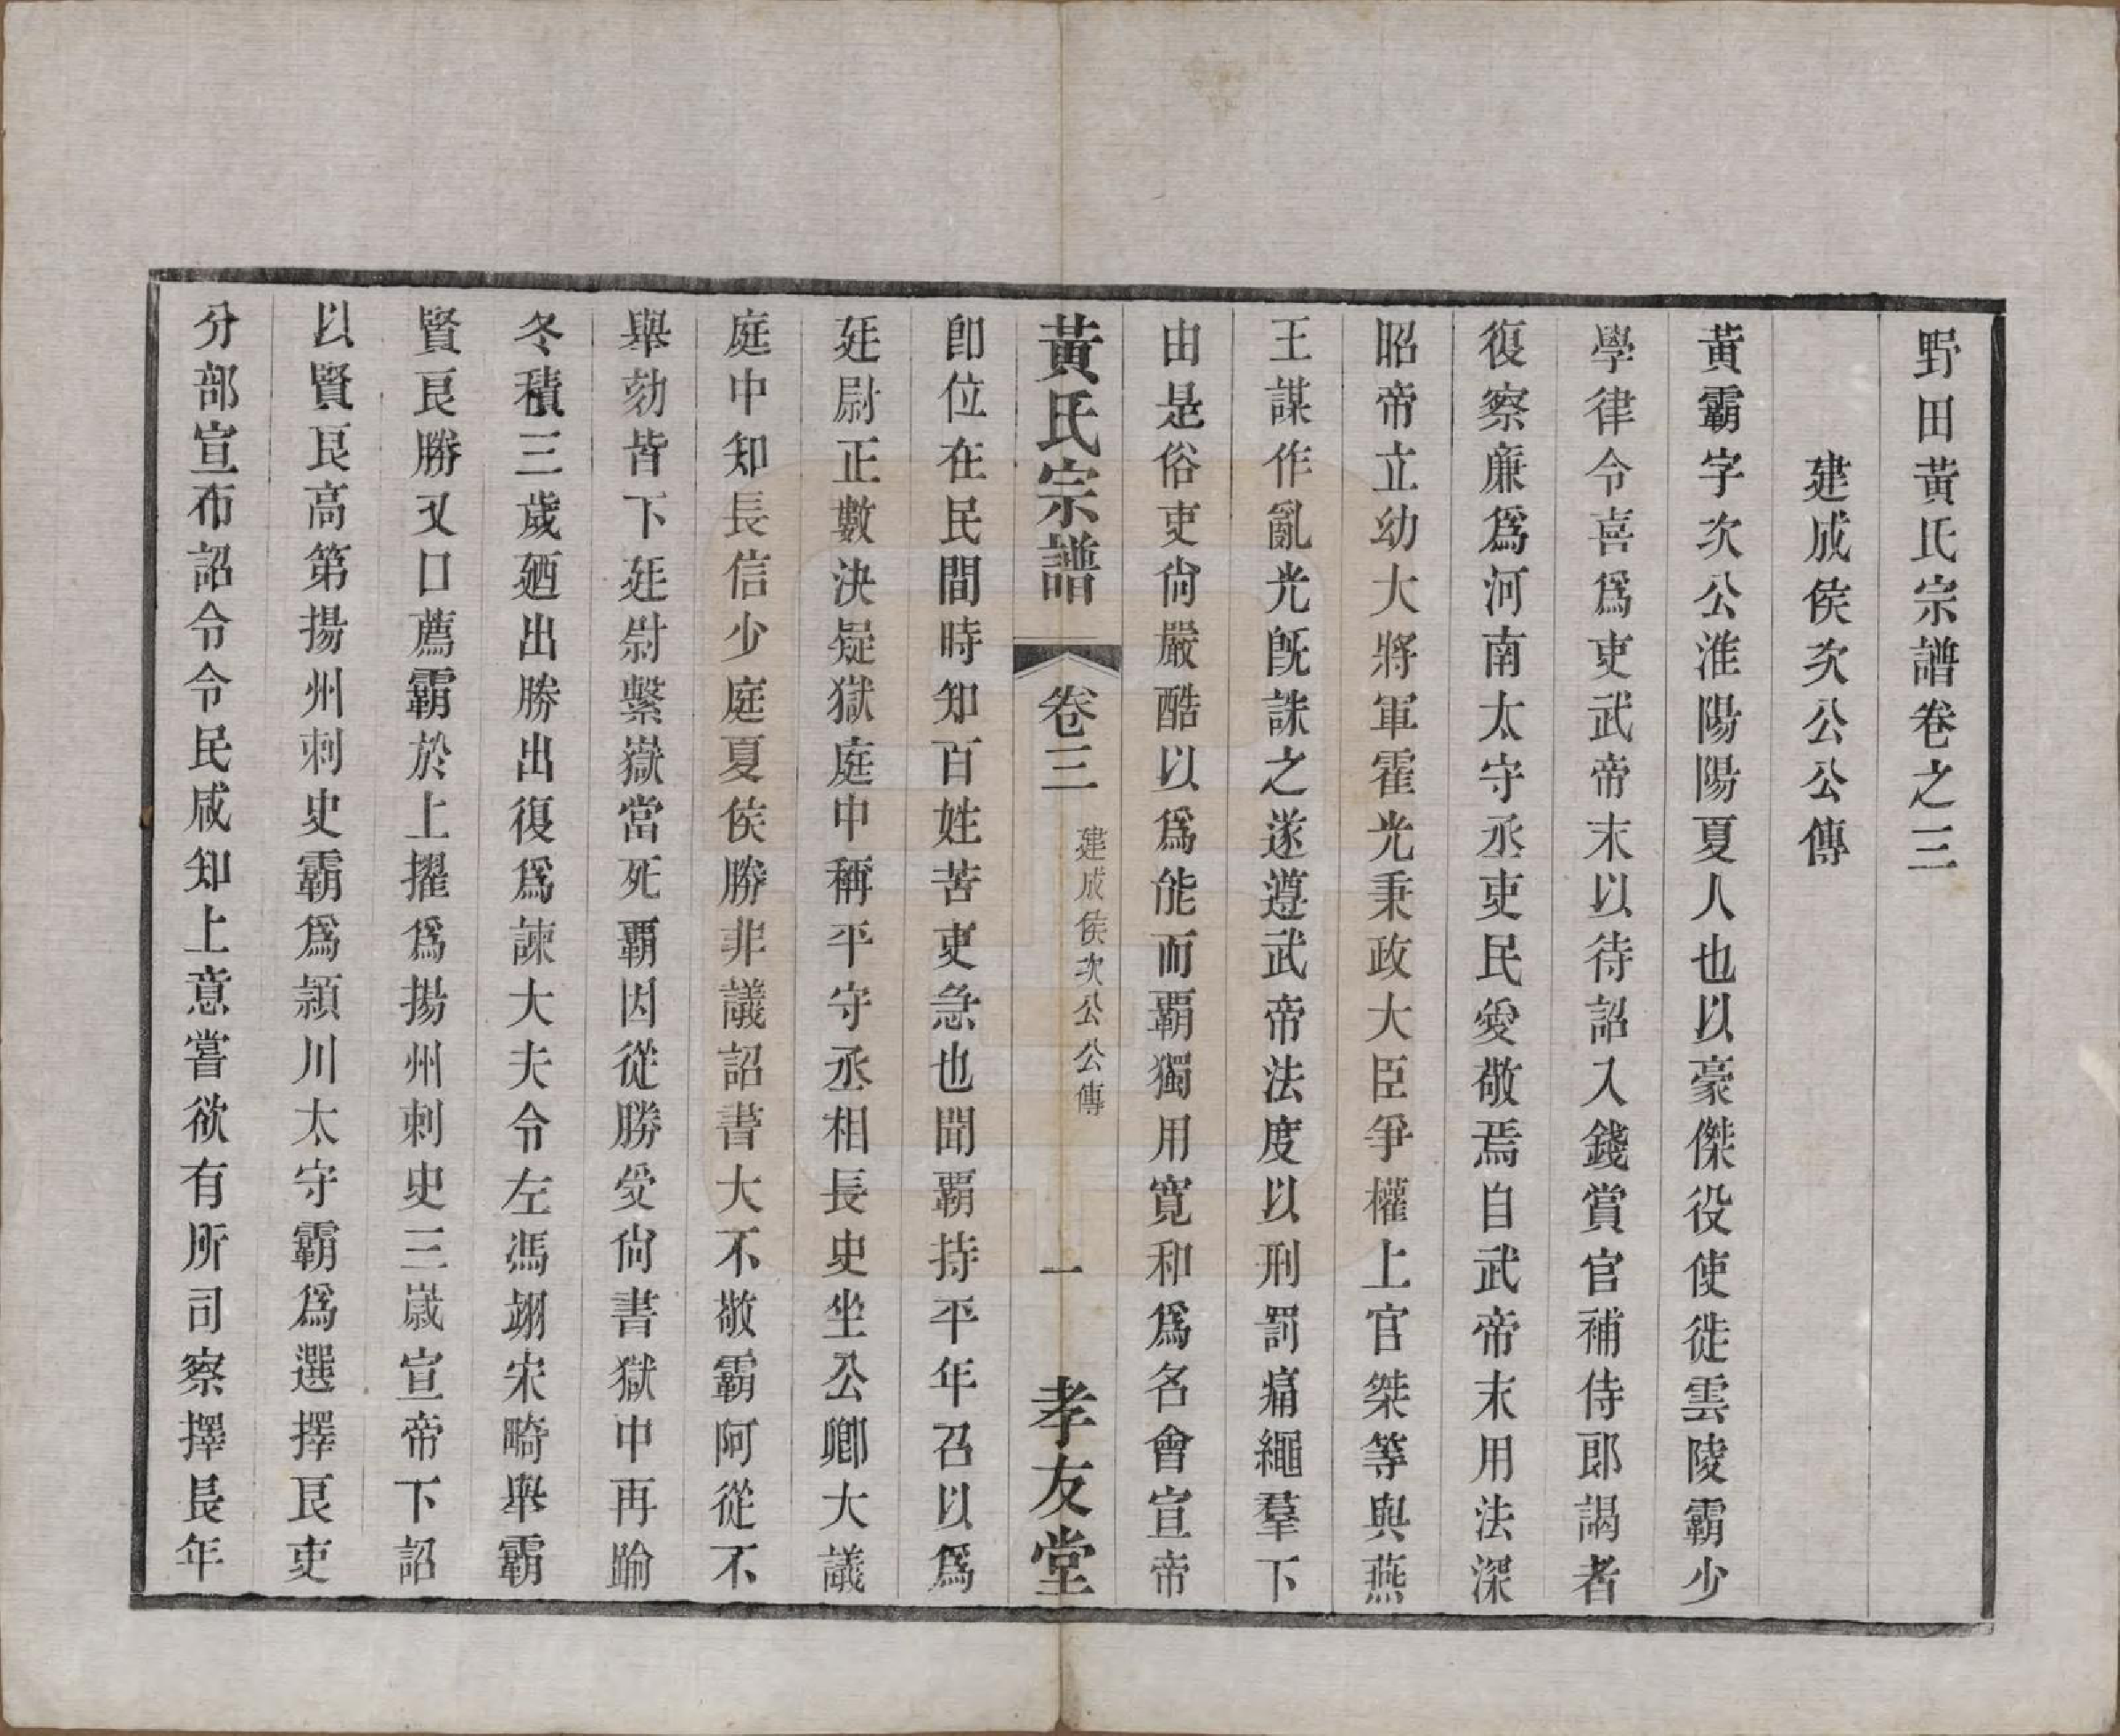 野田黃氏宗譜卷之三
建成侯次公公傳
黃霸字次公淮陽陽夏人也以豪傑役使徙雲陵霸少
學律令喜爲吏武帝末以待詔入錢賞官補侍郎謁者
復察廉爲河南太守丞吏民愛敬焉自武帝末用法深
昭帝立幼大將軍霍光秉政大臣爭權上官桀等與燕
王謀作亂光旣誅之遂遵武帝法度以刑罰痛繩羣下
由是俗吏尙嚴酷以爲能而覇獨用寬和爲名會宣帝
黃氏宗譜 卷三 建成侯次公公傳 一 孝友堂
卽位在民間時知百姓苦吏急也聞覇持平年召以爲
廷尉正數決疑獄庭中稱平守丞相長史坐公卿大議
庭中知長信少庭夏侯勝非議詔書大不敬霸阿從不
舉劾皆下廷尉繫嶽當死覇因從勝受尙書獄中再踰
冬積三歲廼出勝出復爲諫大夫令左馮翊宋畸舉霸
賢良勝又口薦霸於上擢爲揚州刺史三歲宣帝下詔
以賢良高第揚州刺史霸爲潁川太守霸爲選擇良吏
分部宣布詔令令民咸知上意嘗欲有所司察擇長年